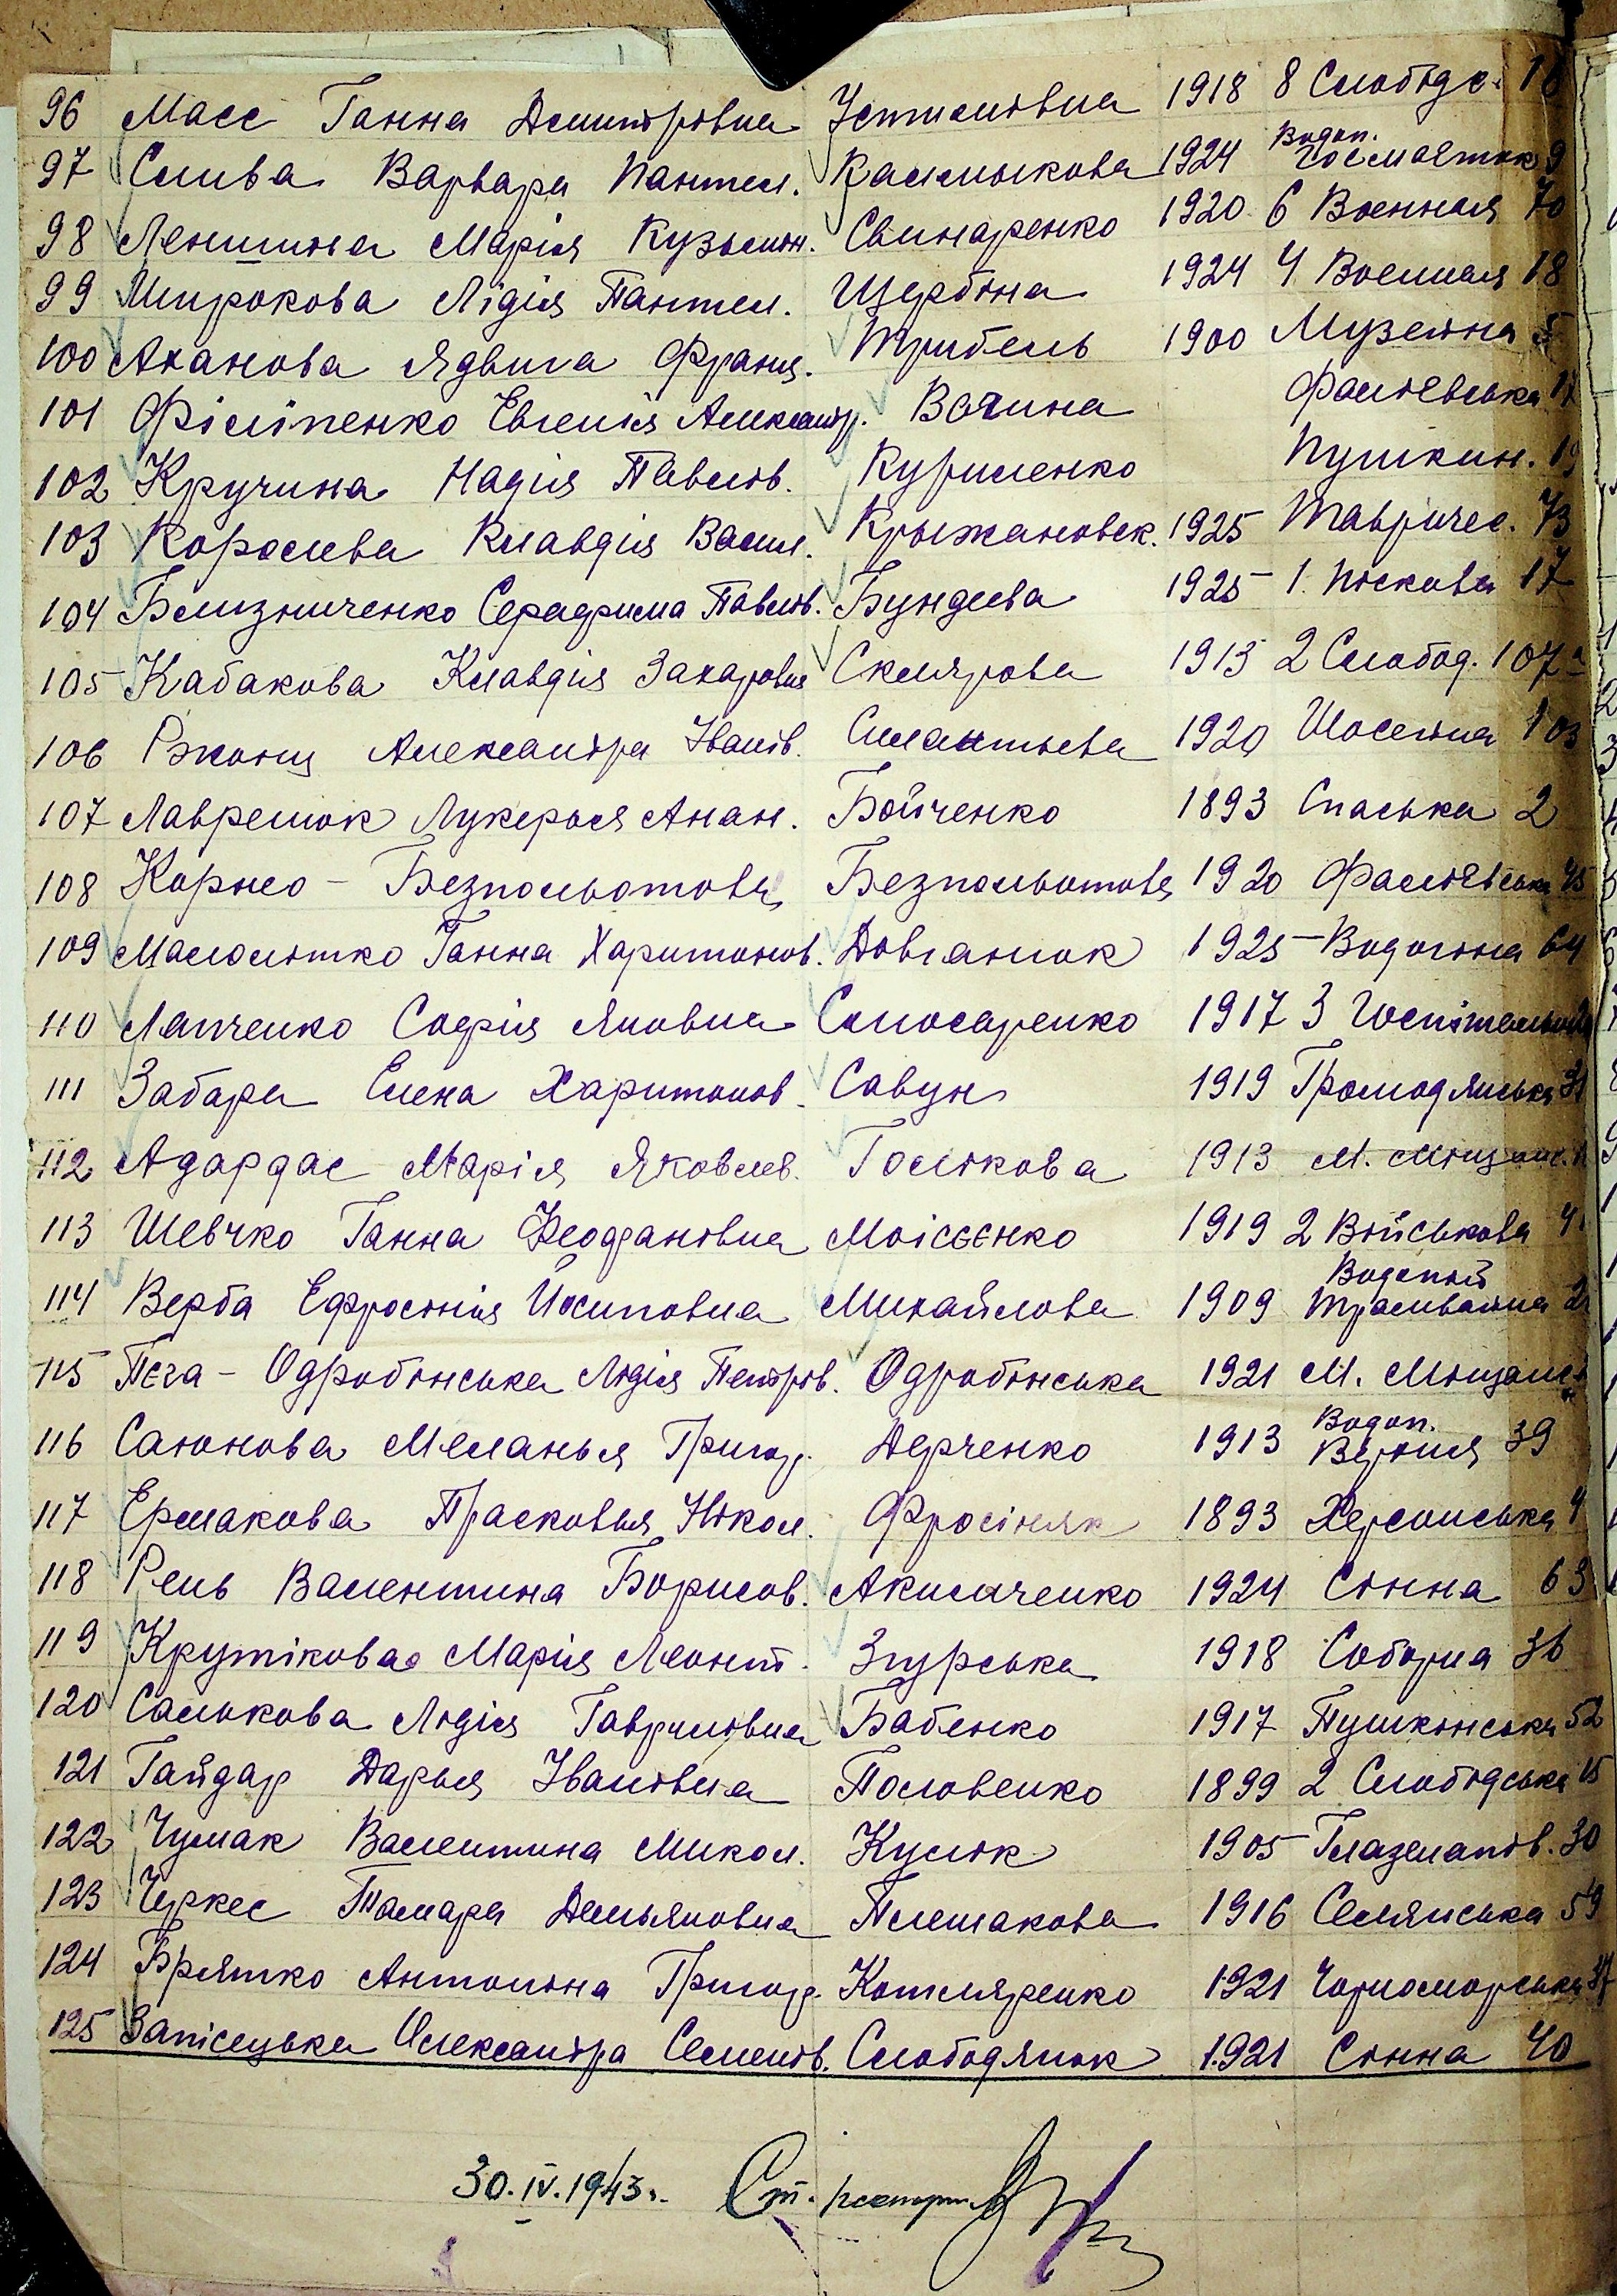 96 Масс Ганна Дмитровна Устимовна 1918 8 Слобідс. 16
97 Слива Варвара Пантел. Калмикова 1924 Водоп. Госмаєток 9
98 Леништна Марія Кузьмин. Свинаренко 1920 6 Военная 70
99 Широкова Лідія Пантел. Щербіна 1924 4 Военная 18
100 Аханова Ядвига Франц. Трибель 1900 Музейна 5
101 Філіпенко Евгенія Александр. Вагина Фалієвська
102 Кручина Надія Павлів. Куриленко Пушкин. 19
103 Королева Клавдія Васил. Крыжановск. 1925 Тавричес. 73
104 Близниченко Серафима Павлів. Бундева 1925 1. Піскова 17
105 Кабакова Клавдія Захаровна Склярова 1913 2 Слобод. 107а
106 Ржонц Александра Іванів. Силантьева 1920 Шосейна 103
107 Лаврешок Лукерья Анан. Бойченко 1893 Спаська 2
108 Корнео - Безпольотова Безпольотова 1920 Фалієвська 45
109 Малолітко Ганна Харитонов. Довганюк 1925 Водогіна 64
110 Лапченко Софія Яковна Слюсаренко 1917 3 Госпітальна
111 Забара Елена Харитонов. Савун 1919 Громодянська 31
112 Адардас Марія Яковлев. Голікова 1913 М. Міщанс.
113 Шевчко Ганна Феофановна Моісєєнко 1919 2 Військова 41
114 Верба Ефросінія Йосиповна Михайлова 1909 Водопий Трамвайна
115 Пєга - Одробінська Лідія Петрів. Одробінська 1921 М. Міщанс
116 Саюнова Меланья Григор. Дерченко 1913 Водоп. Верхня 39
117 Ермакова Прасковья Нікол. Фросіняк 1893 Херсонська 4
118 Рень Валентина Борисов. Акимченко 1924 Сінна 63
119 Крутікова Марія Леонт. Згурська 1918 Соборна 36
120 Салькова Лідія Гавриловна Бабенко 1917 Пушкінська 52
121 Гайдар Дарья Івановна Половенко 1899 2 Слобідська 15
122 Чумак Валентина Микол. Кулік 1905 Глазенапів. 30
123 Черкес Тамара Демьяновна Плешакова 1916 Селянська 59
124 Брятко Антоніна Григор. Котляренко 1921 Чорноморська 37
125 Запісецька Олександра Семенів. Слободянюк 1921 Сінна 40
30.IV.1943 г. Ст. реєстрат.